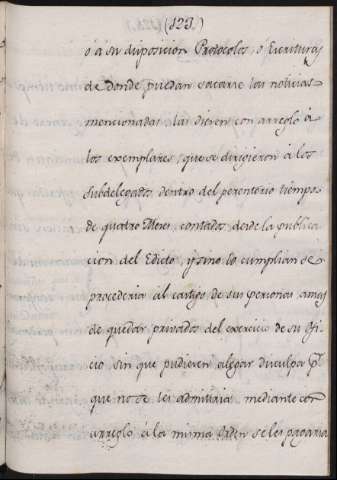 (123.)
o à su disposicion Protocolos, o Escrituras
de donde puedan sacarse las noticias
mencionadas, las diesen con arreglo à
los exemplares, que se dirigieron à los
Subdelegados dentro del perentorio tiempo
de quatro Meses, contados desde la publica
cion del Edicto, y sino lo cumplian se
procederia al castigo de sus personas amas
de quedar privados del exercicio de su ofi
cio sin que pudiesen alegar disculpa
que no se les admitiria, mediante con
arreglo à la misma Orden se les pagaria